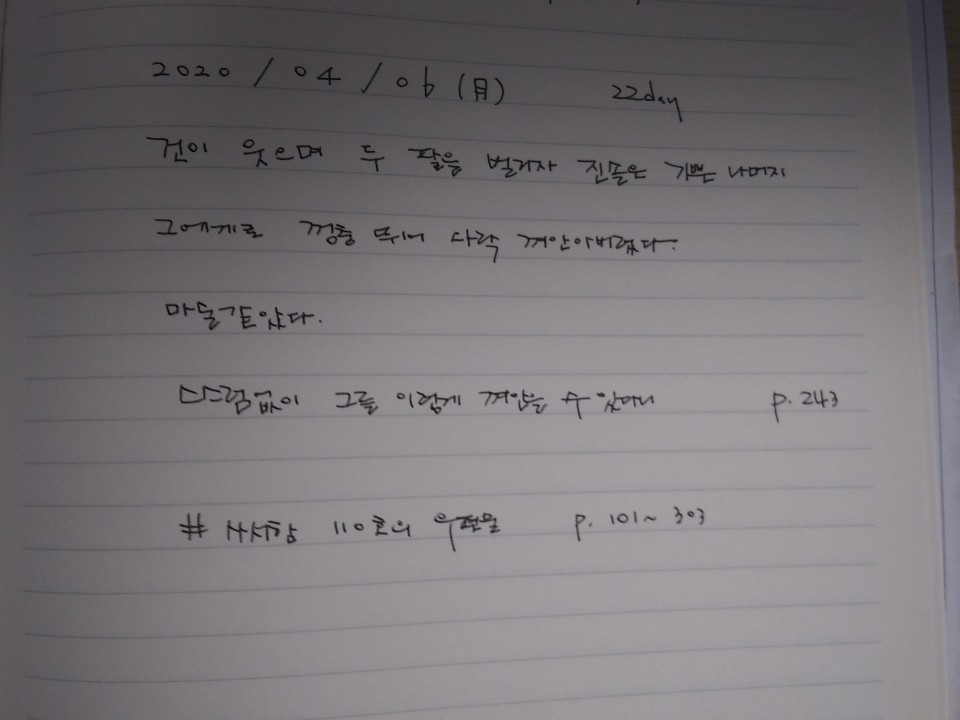 2020 / 04 / 06 (月) 22day
건이 웃으며 두 팔을 벌리자 진솔은 기쁜 나머지
그에게로 껑충 뛰어 와락 껴안아버렸다.
마술같았다.
스스럼없이 그를 이렇게 껴안을 수 있다니 p. 243
# 사서함 110호의 우편물 p. 101~ 303